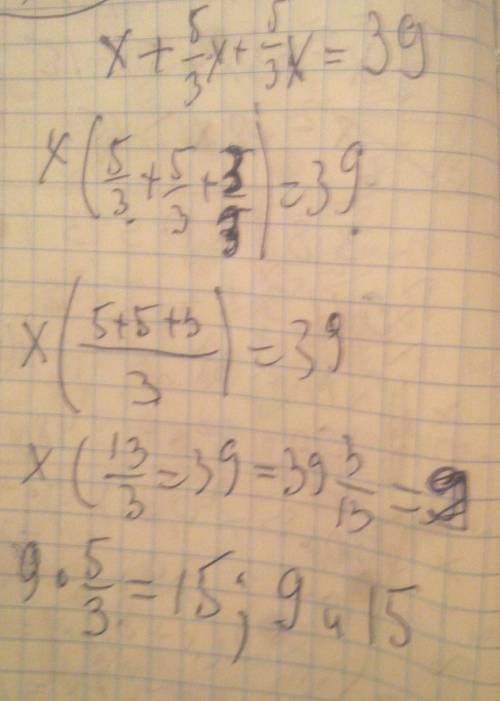 x + 5/3 x + 5/3 x = 39
x ( 5/3 + 5/3 + 3/3 ) = 39
x ( 5+5+3 / 3 ) = 39
x ( 13/3 = 39 = 39 3/13 = 9
9 · 5/3 = 15 ; 9 и 15